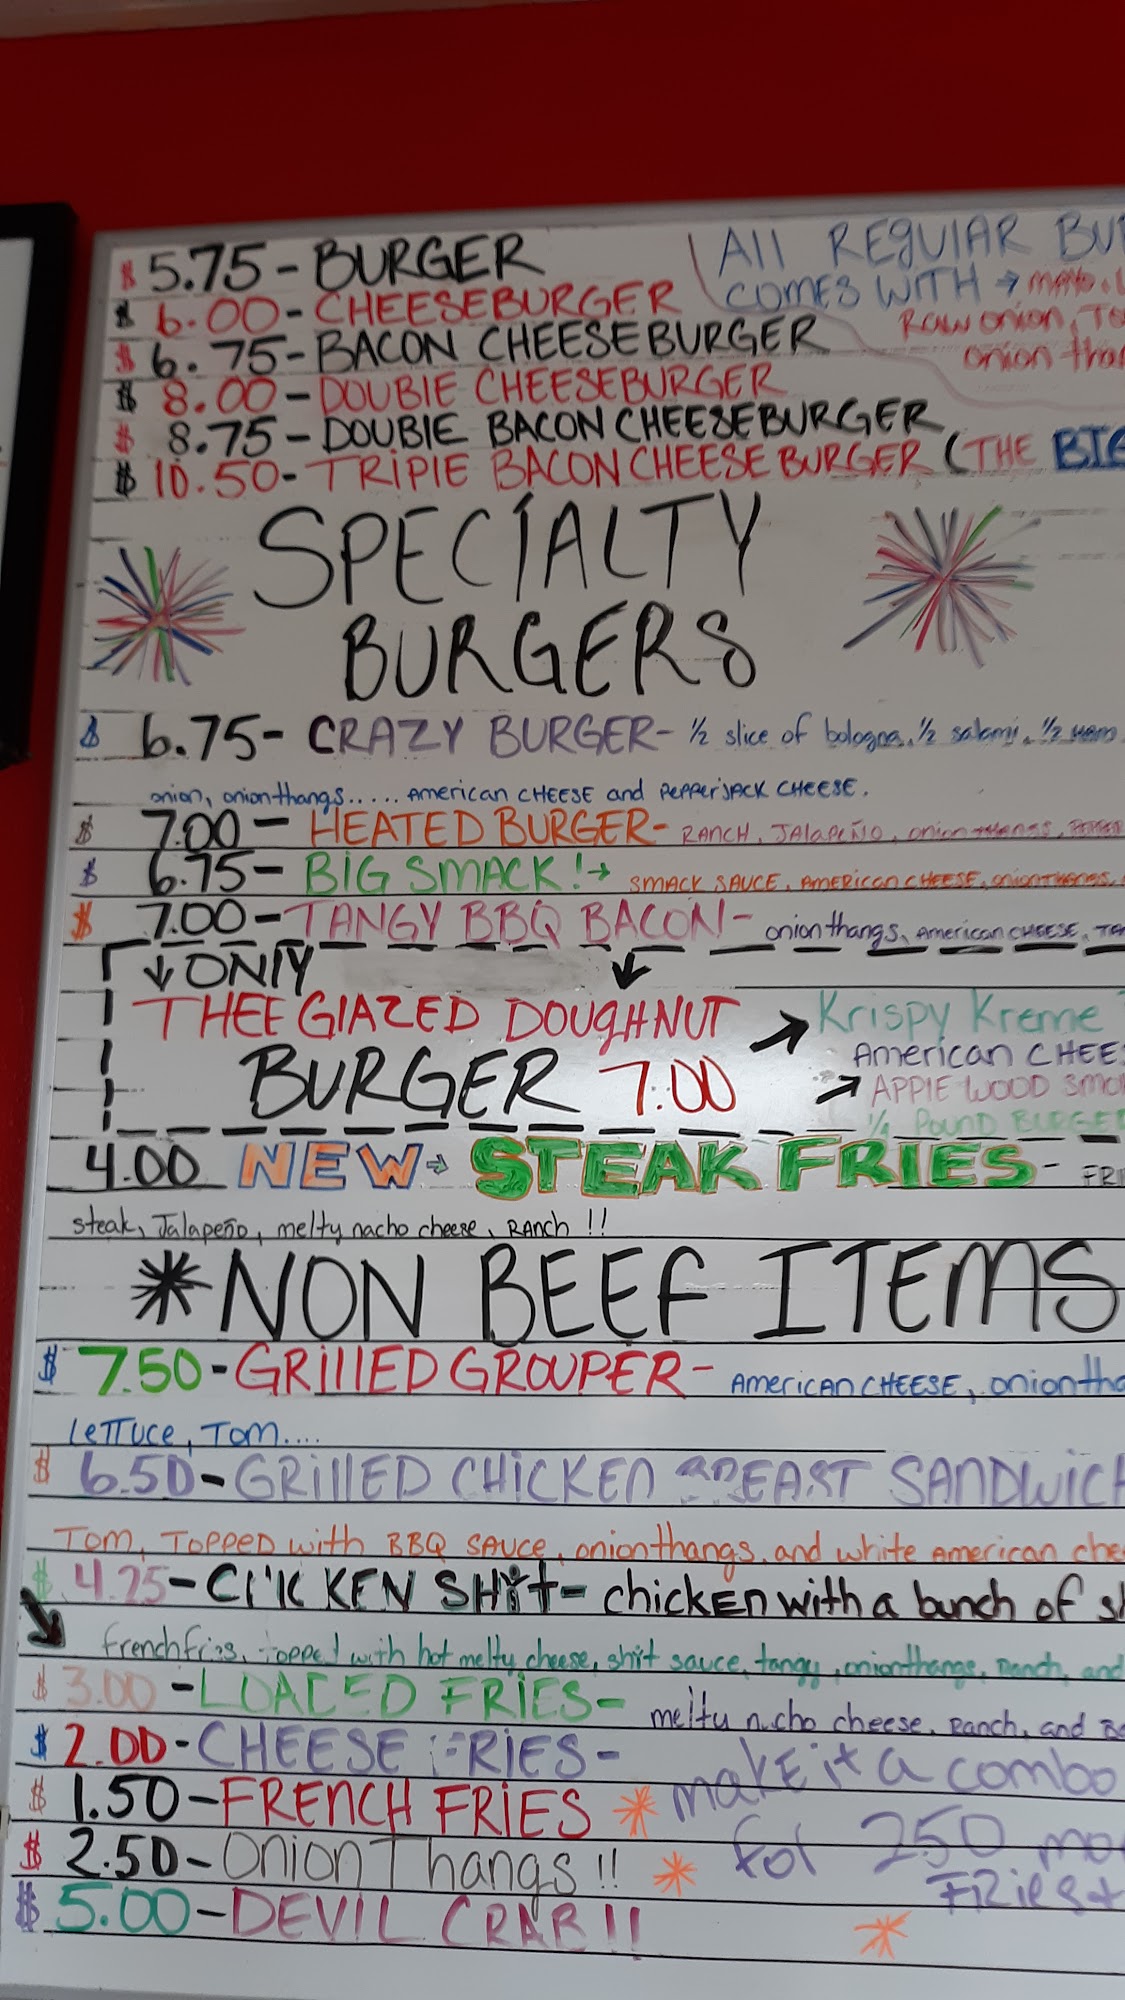 $ 5.75 - BURGER
All REGUlAR
COMES WITH →
$ 6.00 - CHEESEBURGER
RAW ONION,
$ 6.75 - BACON CHEESEBURGER
onion
$ 8.00 - DOUBlE CHEESEBURGER
$ 8.75 - DOUBlE BACON CHEESEBURGER
$ 10.50 - TRiPlE BACON CHEESE BURGER (THE BIG
SPECIALTY
BURGERS
$ 6.75 - CRAZY BURGER - 1/2 slice of bologna, 1/2 salami, 1/2 HAM
onion, onionthangs..... AMERICAN CHEESE and PEPPERJACK CHEESE.
$ 7.00 - HEATED BURGER - RANCH, JALAPEÑO, onionthangs,
$ 6.75 - BIG SMACK! → SMACK SAUCE, AMERICAN CHEESE, onionthangs,
$ 7.00 - TANGY BBQ BACON - onionthangs, AMERICAN CHEESE,
↓ ONlY ↓
THEE GlAZED DOUGHNUT → Krispy Kreme
AMERICAN CHEES
BURGER 7.00 → APPlE WOOD
1/4 POUND BURGER
4.00 NEW → STEAK FRIES -
steak, Jalapeño, melty nacho cheese, RANCH !!
*NON BEEF ITEMS
$ 7.50 - GRillED GROUPER - AMERICAN CHEESE,
LETTUCE, TOM....
$ 6.50 - GRillED CHiCKEN BREAST SANDWiCH
TOM, TOPPED with BBQ SAUCE, onionthangs, and white AMERICAN
$ 4.25 - CHiCKEN SHiT - chicken with a bunch of
→ french fries, topped with hot melty cheese, shit sauce, tangy, onionthangs, Ranch, and
$ 3.00 - LOADED FRiES - melty nacho cheese, RANCH, and
$ 2.00 - CHEESE FRiES -
make it a combo
$ 1.50 - FRENCH FRiES *
for 2.50
$ 2.50 - Onion Thangs !! *
FRies +
$ 5.00 - DEVIL CRAB !! *